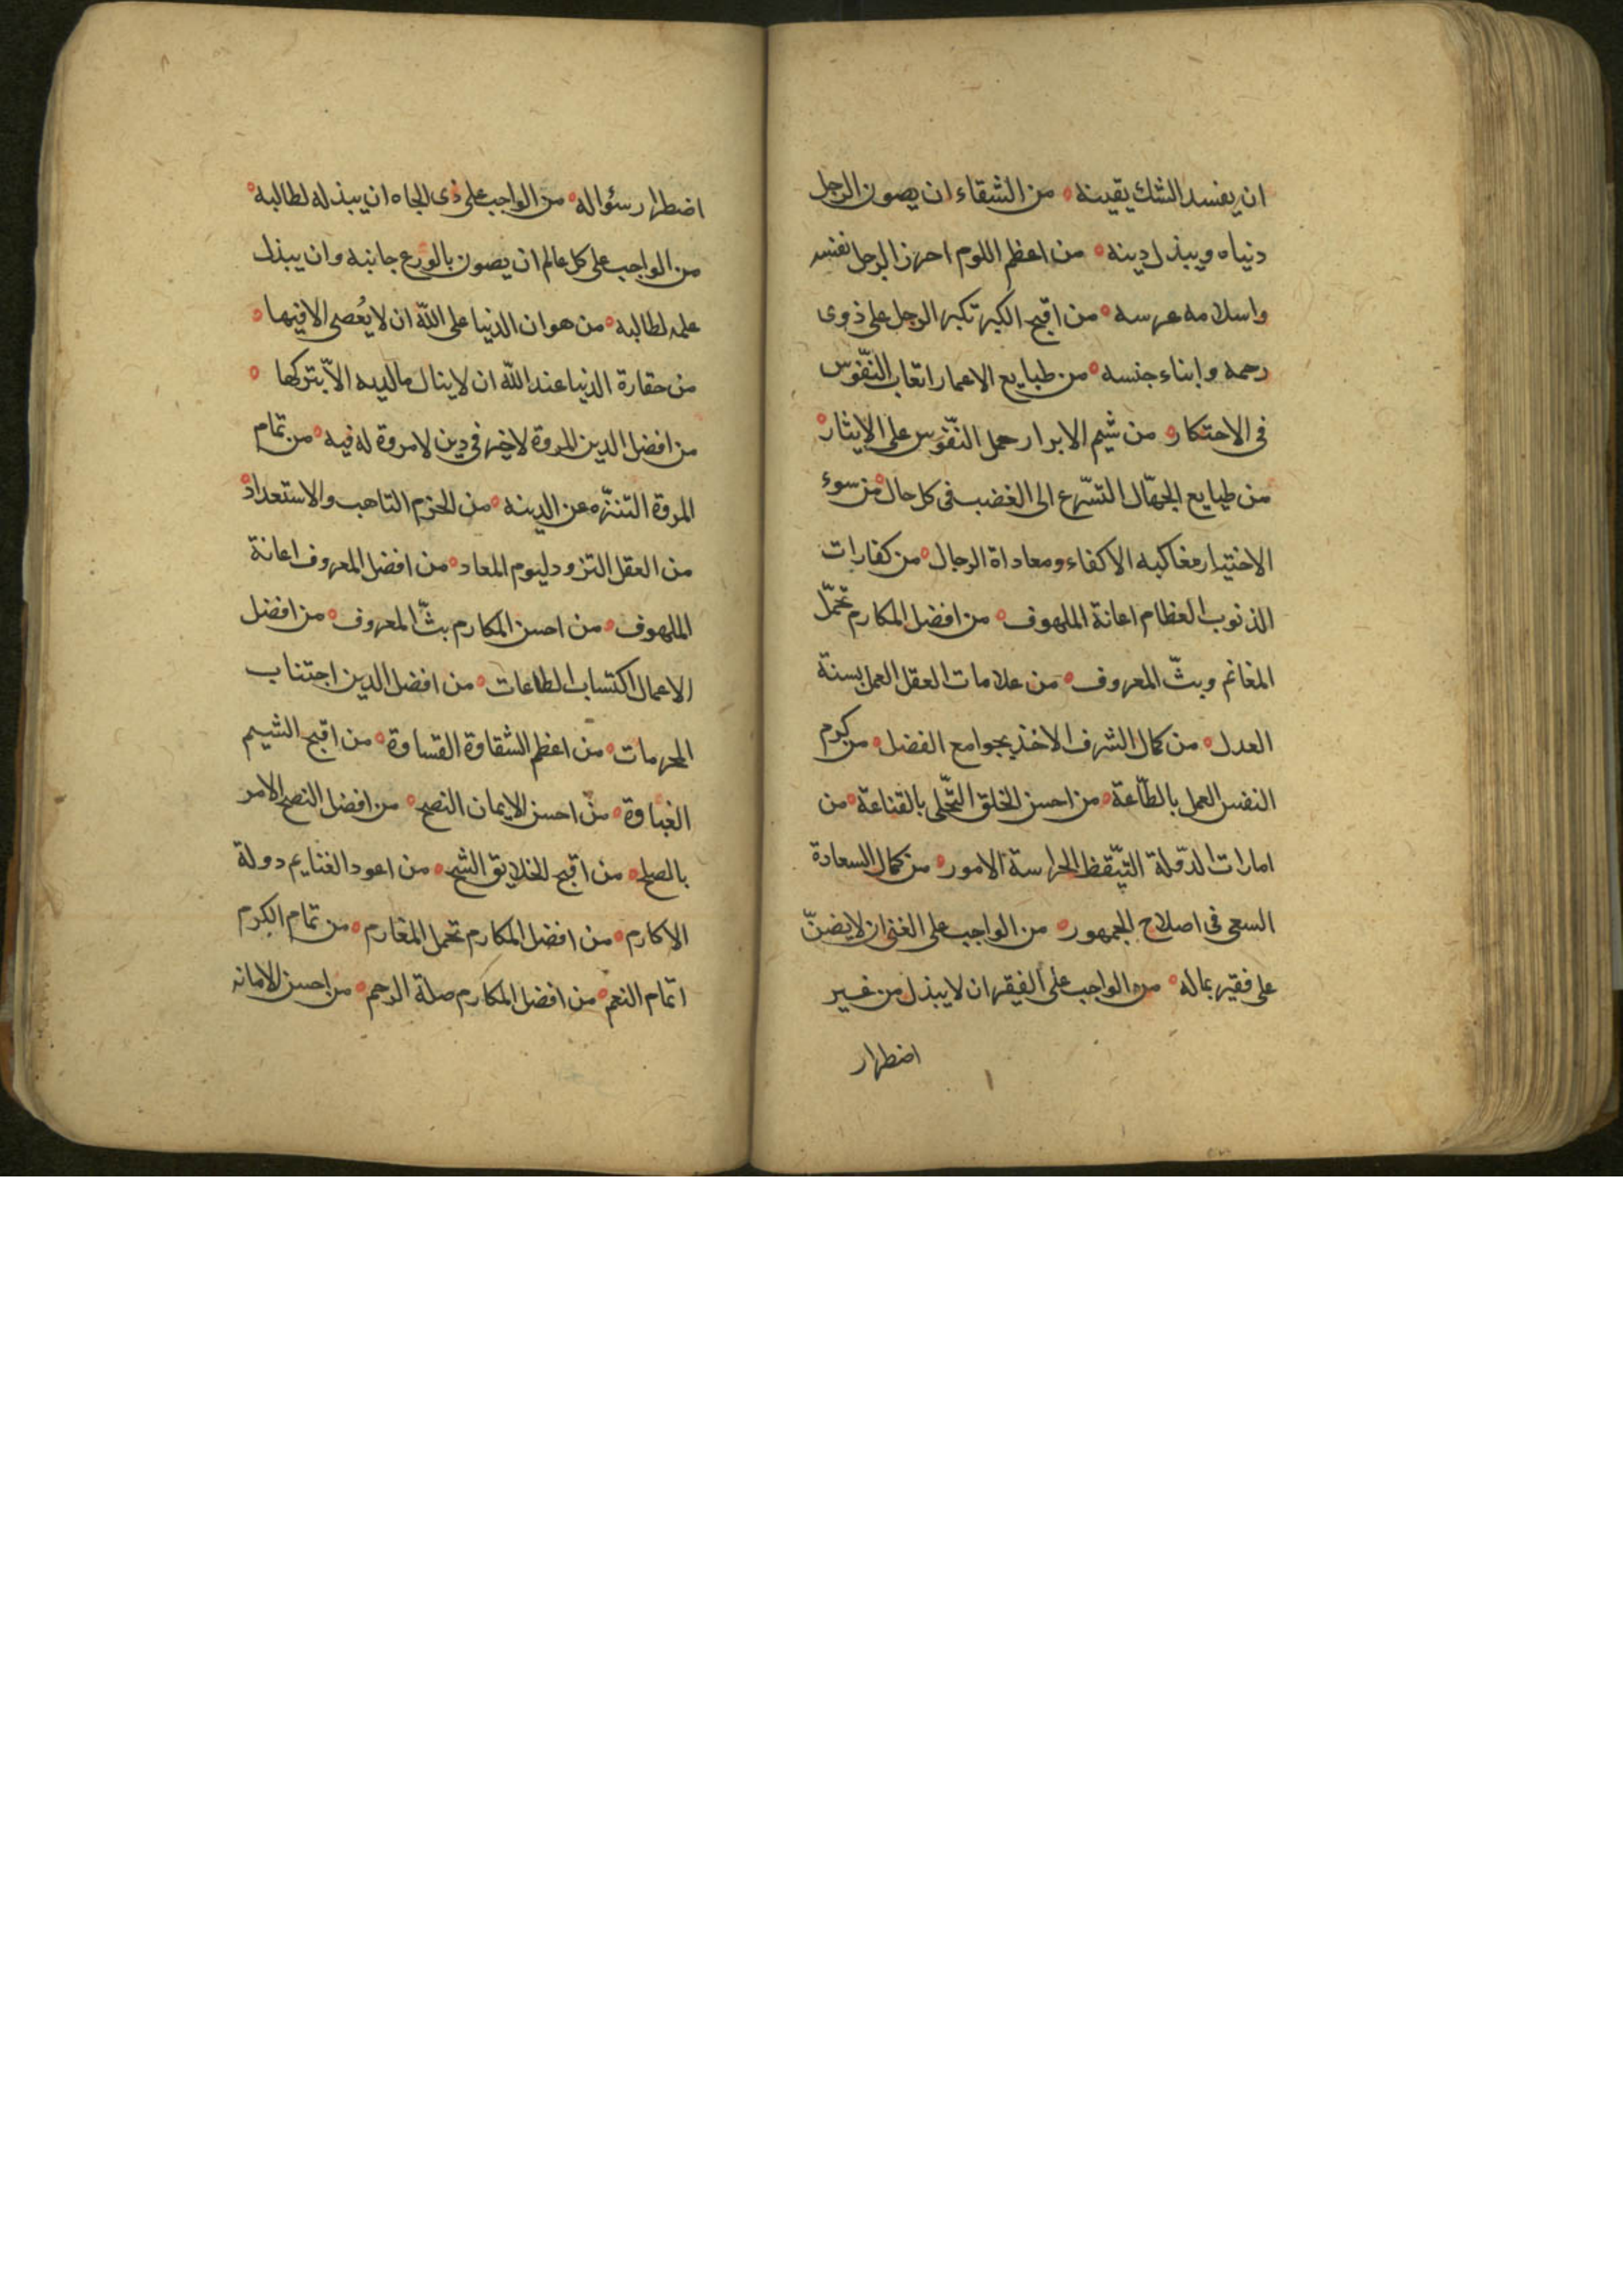 ان يفسد الشك يقينه ه من الشقاء ان يصون الرجل
دنياه ويبذل دينه ه من اعظم اللوم احراز الرجل نفسه
واسلامه عرسه ه من اقبح الكبر تكبر الرجل على ذوى
رحمه وابناء جنسه ه من طبايع الاغمار اتعاب النّفوس
فى الاحتكار ه من شيم الابرار حمل النّفوس على الايثار ه
من طبايع الجهّال التسّرع الى الغضب فى كل حال ه من سوء
الاختيار مغالبة الاكفاء ومعاداة الرجال ه من كفارات
الذنوب العظام اعانة الملهوف ه من افضل المكارم تحمّل
المغانم وبثّ المعروف ه من علامات العقل العمل بسنة
العدل ه من كمال الشرف الاخذ بجوامع الفضل ه من كرم
النفس العمل بالطّاعة ه من احسن الخلق التّحلى بالقناعة ه من
امارات الدّولة التيّقظ لحراسة الامور ه من كمال السعادة
السعى فى اصلاح الجمهور ه من الواجب على الغنى ان لا يضنّ
على فقير بماله ه من الواجب على الفقير ان لا يبذل من غير
اضطرار
اضطرار سؤاله ه من الواجب على ذى الجاه ان يبذله لطالبه ه
من الواجب على كل عالم ان يصون بالورع جانبه وان يبذل
علمه لطالبه ه من هوان الدنيا على اللّه ان لا يُعصى الا فيها ه
من حقارة الدنيا عند اللّه ان لا ينال ما لديه الاّ بتركها ه
من افضل الدين المروة لا خير فى دين لا مروة له فيه ه من تمام
المروة التنزّه عن الدينه ه من الحزم التاهب والاستعداد ه
من العقل التزود ليوم المعاد ه من افضل المعروف اعانة
الملهوف ه من احسن المكارم بثّ المعروف ه من افضل
الاعمال اكتساب الطاعات ه من افضل الدين اجتناب
المحرمات ه من اعظم الشقاوة القساوة ه من اقبح الشيم
الغباوة ه من احسن الايمان النصح ه من افضل النصح الامر
بالصلح ه من اقبح الخلايق الشح ه من اعود الغنايم دولة
الاكارم ه من افضل المكارم تحمل المغارم ه من تمام الكرم
اتمام النعم ه من افضل المكارم صلة الرحم ه من احسن الامانه